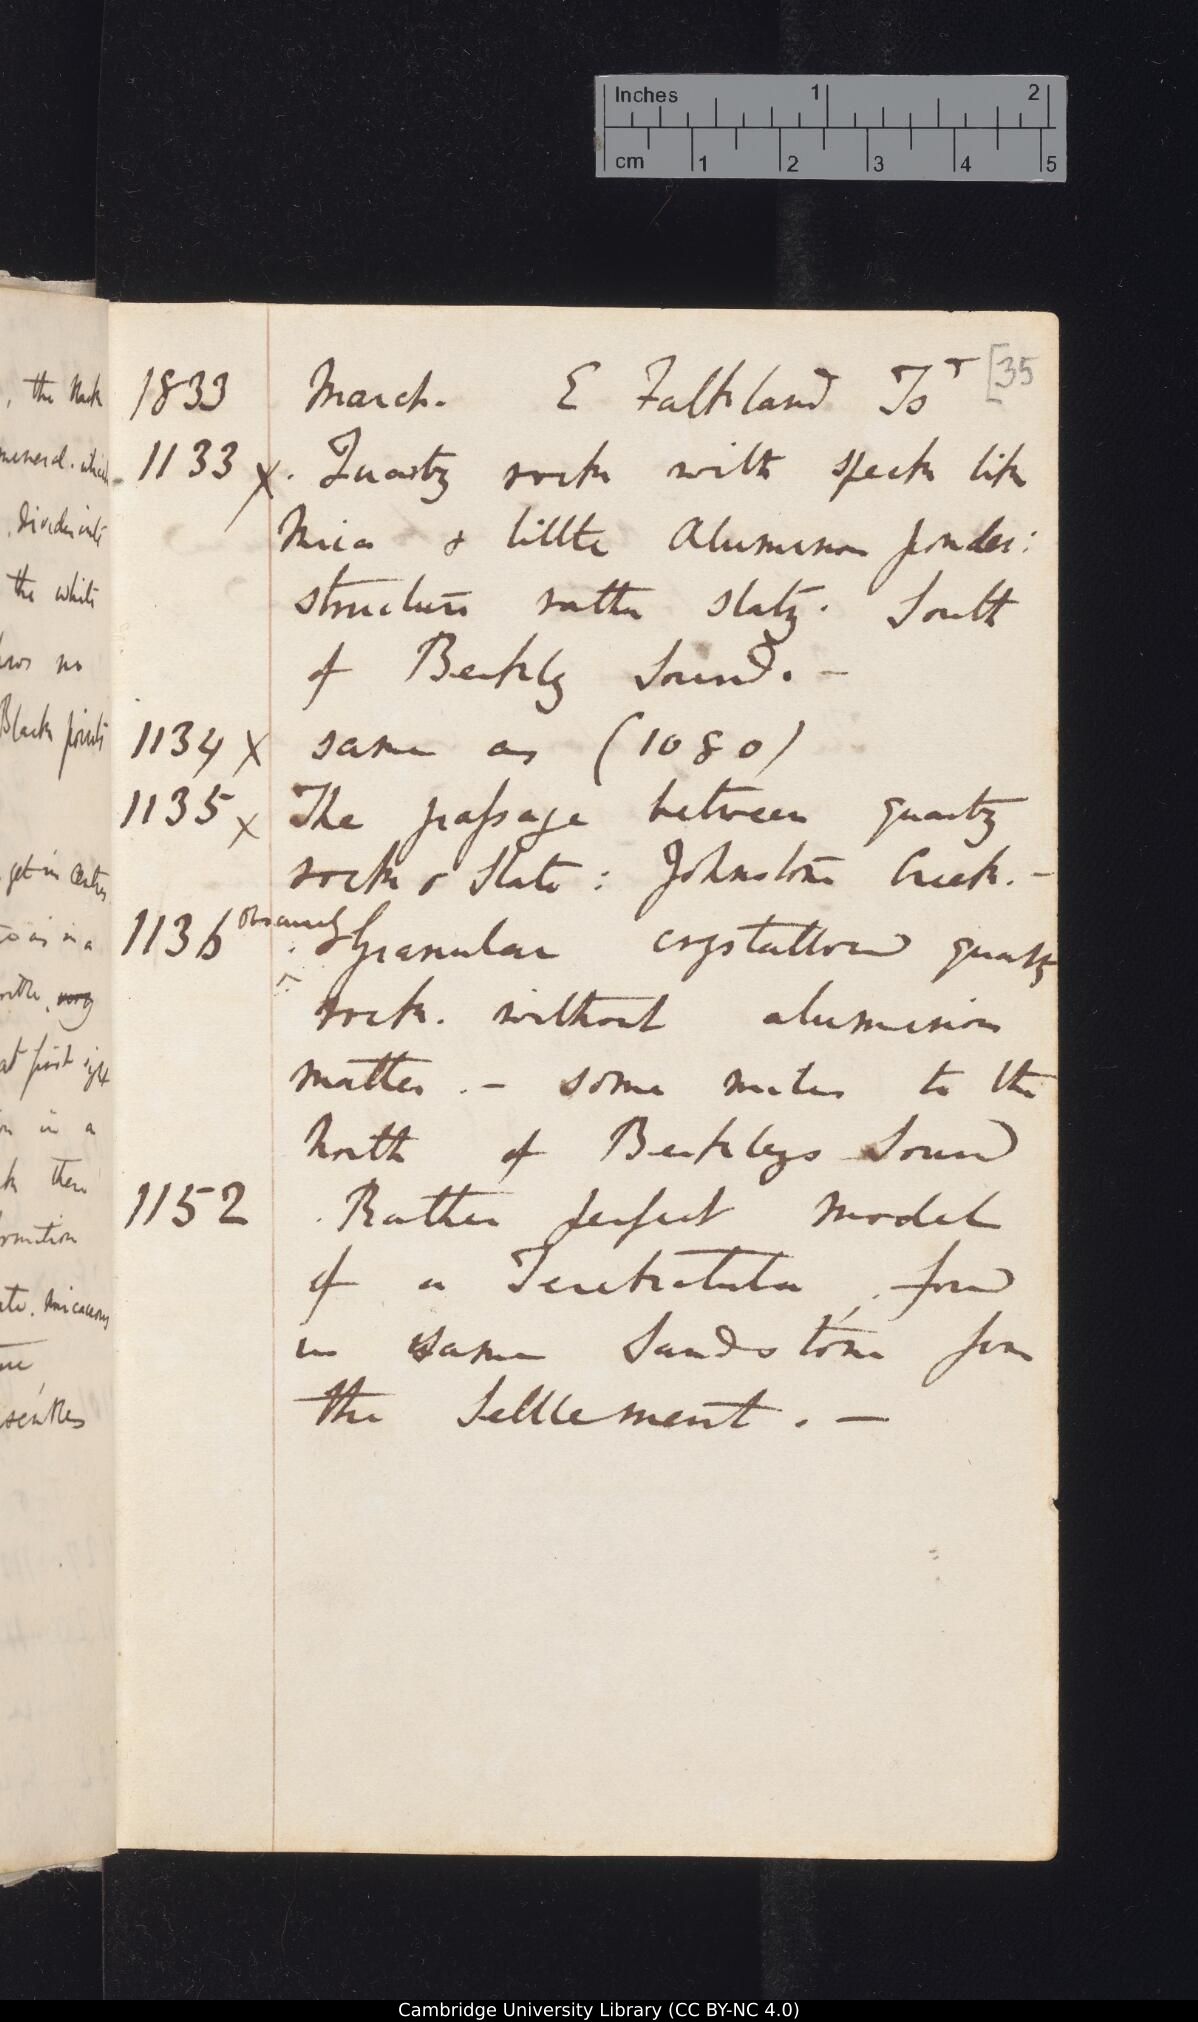 Inches 1 2
cm 1 2 3 4 5
[35
1833 March. E Falkland Isd
1133 X. Quartz rock with speck like
Mica & little Aluminous powder:
structure rather slaty. South
of Berkly Sound. —
1134 X same as (1080)
1135 X The passage between quartz
rock & Slate: Johnstone Creek. —
obscurely
1136 . Granular crystallized quartz
rock. without aluminous
matter. — some miles to the
North of Berkleys Sound
1152 . Rather perfect model
of a Terebratula, found
in same Sandstone from
the Settlement. —
, the Rock
mineral. which
. divides into
the white
no
Black points
get in
in a
very
at first sight
in a
then
formation
micaceous
Cambridge University Library (CC BY-NC 4.0)